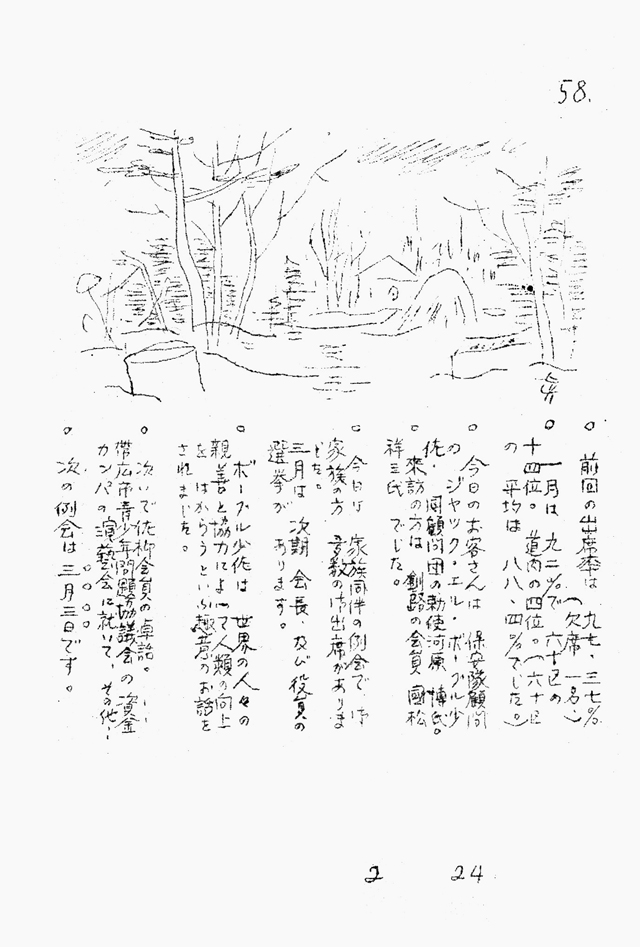 58.
○ 前回の出席率は 九七・三七%
(欠席 一名、)
○ 一月は 九二%で 六十区の
十四位。 道内の四位。(六十区
の 平均は 八八、四%でした。)
○ 今日のお客さんは 保安隊顧問
の ジャック・エル・ボーグル少
佐・ 同顧問団の勅使河原 博氏。
○ 来訪の方は 釧路の会員 國松
祥三氏 でした。
○ 今日は 家族同伴の例会で 御
家族の方 多数の御出席がありま
した。
三月は 次期 会長、及び役員の
選挙が あります。
○ ボーグル少佐は 世界の人々の
親善と協力によって人類の向上
を はからうという趣意のお話を
されました。
○ 次いで 佐 会員の 卓話。
帯広市青少年問題協議会の 資金
カンパの 演藝会に就いて、その他、
○○○○
○ 次の例会は 三月三日です。
2 24